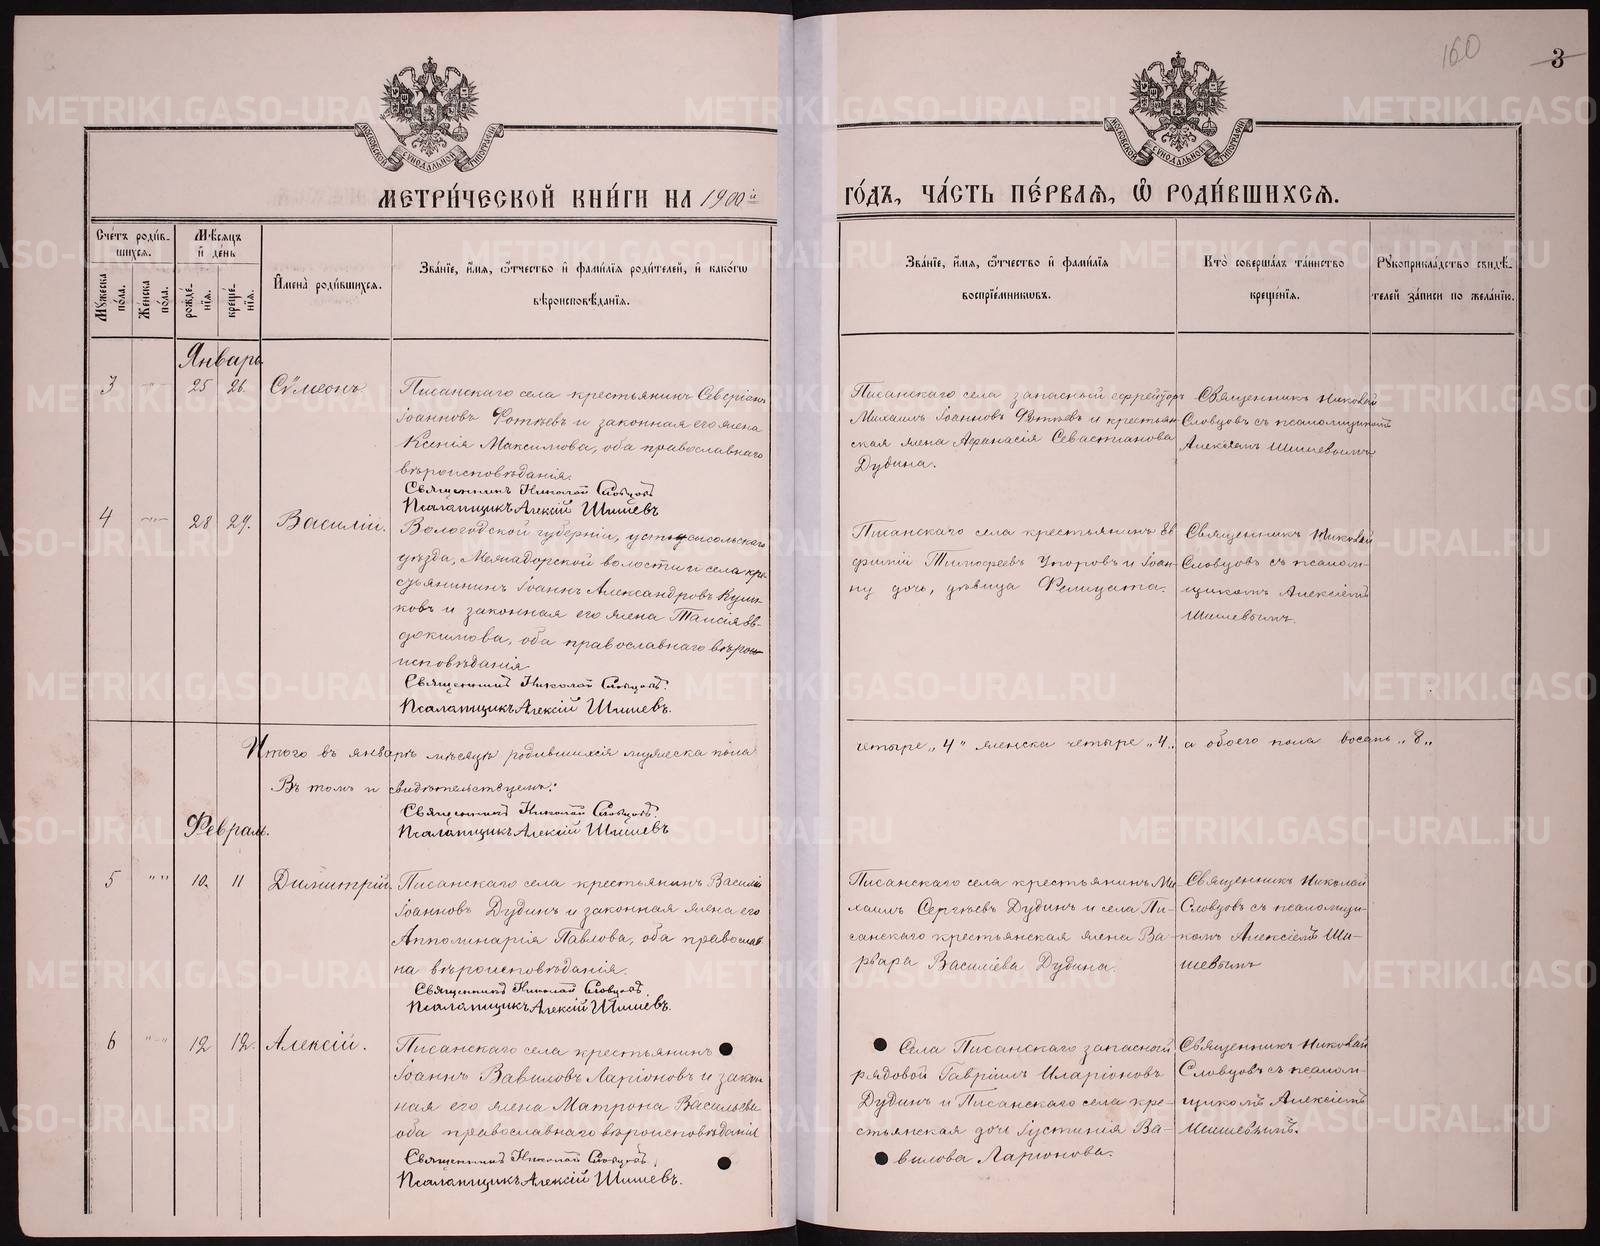 160
3
МОСКОВСКОЙ СѴНОДАЛЬНОЙ ТИПОГРАФІИ
МОСКОВСКОЙ СѴНОДАЛЬНОЙ ТИПОГРАФІИ
МЕТРИ́ЧЕСКОЙ КНИ́ГИ НА 1900й
ГО́ДЪ, ЧА́СТЬ ПЕ́РВАѦ, Ѽ РОДИ́ВШИХСѦ.
Счетъ роди́в-
шихсѧ.
Мꙋжеска пола.
Женска пола.
Мѣсѧцъ
и҆ де́нь
рожде́-
нїѧ.
креще́-
нїѧ.
И҆мена̀ роди́вшихсѧ.
Зва́нїе, и҆́мѧ, ѻ҆́тчество и҆ фами́лїѧ роди́телей, и҆ како́гѡ
вѣроисповѣ́данїѧ.
Зва́нїе, и҆́мѧ, ѻ҆́тчество и҆ фами́лїѧ
воспрїе́мникѡвъ.
Кто̀ соверша́лъ та́инство
креще́нїѧ.
Рꙋкоприкла́дство свидѣ́-
телей за́писи по жела́нїю.
Январь
3 " 25 26. Сѵмеонъ
Писанскаго села крестьянинъ Северіанъ
Іоанновъ Фотѣевъ и законная его жена
Ксенія Максимова, оба православнаго
вѣроисповѣданія.
Священникъ Николай Словцовъ
Псаломщикъ Алексій Шишевъ
Писанскаго села запасный ефрейторъ
Михаилъ Іоанновъ Фотѣевъ и крестьян-
ская жена Афанасія Севастіанова
Дудина.
Священникъ Николай
Словцовъ съ псаломщикомъ
Алексѣемъ Шишевымъ
4 " 28 29. Василій.
Вологодской губерніи, устьсысольскаго
уѣзда, Межадорской волости и села кре-
стьянинъ Іоаннъ Александровъ
ковъ и законная его жена Таисія Ев-
докимова, оба православнаго вѣрои-
исповѣданія
Священникъ Николай Словцовъ.
Псаломщикъ Алексій Шишевъ.
Писанскаго села крестьянинъ Ев
фимій Тимофеевъ Упоровъ и Іоан-
ну дочь, дѣвица Фелицата.
Священникъ Николай
Словцовъ съ псалом-
щикомъ Алексіемъ
Шишевымъ.
Итого въ январѣ мѣсяцѣ родившихся мужеска пола
четыре „4" женска четыре „4„ а обоего пола восемь „8„
Въ томъ и свидѣтельствуемъ:
Священникъ Николай Словцовъ.
Псаломщикъ Алексій Шишевъ
Февраль.
5 " " 10. 11 Димитрій.
Писанскаго села крестьянинъ Василій
Іоанновъ Дудинъ и законная жена его
Апполинарія Павлова, оба православ-
на вѣроисповѣданія.
Священникъ Николай Словцовъ.
Псаломщикъ Алексій Шишевъ.
Писанскаго села крестьянинъ Ми
хаилъ Сергѣевъ Дудинъ и села Пи-
санскаго крестьянская жена Ва-
рвара Василіева Дудина.
Священникъ Николай
Словцовъ съ псаломщи-
комъ Алексіемъ Ши-
шевымъ
6 " " 12 12. Алексій.
Писанскаго села крестьянинъ
Іоаннъ Вавиловъ Ларіоновъ и закон-
ная его жена Матрона Васильева
оба православнаго вѣроисповѣданія
Священникъ Николай Словцовъ.
Псаломщикъ Алексій Шишевъ.
Села Писанскаго запасный
рядовой Гавріилъ Иларіоновъ
Дудинъ и Писанскаго села кре-
стьянская дочь Іустинія Ва-
вилова Ларіонова.
Священникъ Николай
Словцовъ съ псалом-
щикомъ Алексіемъ
Шишевымъ.
METRIKI.GASO-URAL.RU